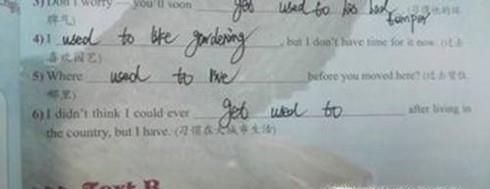 3) Don't worry — you'll soon get used to his bad (习惯他的坏
脾气) temper
4) I used to like gardening, but I don't have time for it now. (过去
喜欢园艺)
5) Where used to live before you moved here? (过去曾住
哪里)
6) I didn't think I could ever get used to after living in
the country, but I have. (习惯在大城市生活)
Text B